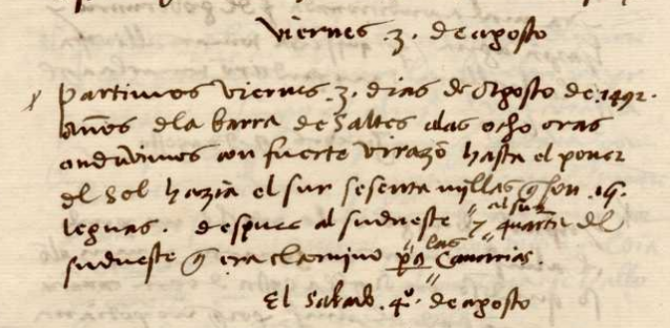 viernes .3. de agosto
partimos viernes .3. dias de agosto de .1492.
años dla barra de saltes a las ocho oras
anduvimos con fuerte virazõ hasta el poner
del sol hazia el sur sesenta millas q̃ son .15.
leguas. despues al sudueste y al sur quarta del
sudueste q̃ era el camino pª las Canarias.
El Sabado .4º. de agosto